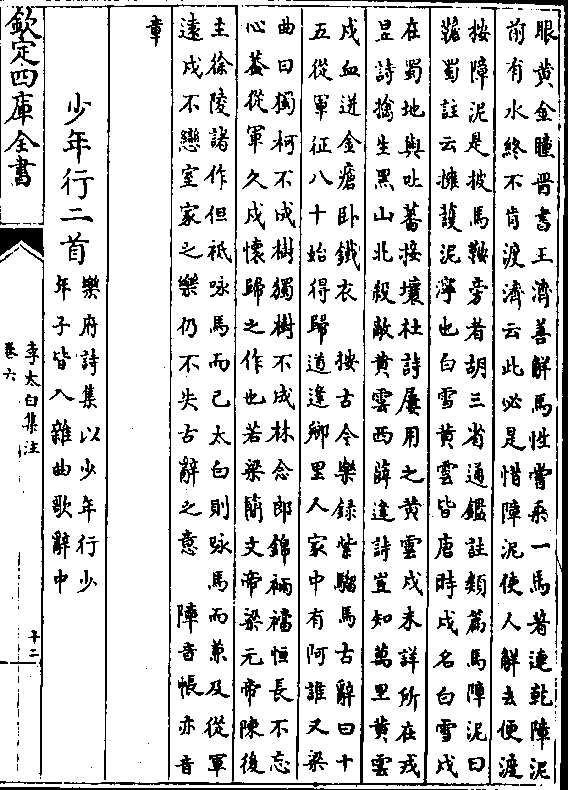 眼黄金瞳晋書王濟善解馬性嘗乗一馬著連乾障泥
前有水終不肯渡濟云此必是惜障泥使人解去便渡
按障泥是披馬鞍旁者胡三省通鑑註類篇馬障泥曰
蜀註云擁護泥濘也白雪黄雲皆唐時戍名白雪戍
在蜀地與吐蕃接壤杜詩屢用之黄雲戍未詳所在戎
昱詩擒生黑山北殺敵黄雲西薛逢詩豈知萬里黄雲
戍血迸金瘡卧鐵衣　按古今樂録紫騮馬古辭曰十
五從軍征八十始得歸道逢鄉里人家中有阿誰又梁
曲曰獨柯不成樹獨樹不成林念郎錦裲襠恒長不忘
心葢從軍久戍懷歸之作也若梁簡文帝梁元帝陳後
主徐陵諸作但祗咏馬而已太白則咏馬而兼及從軍
遠戍不戀室家之樂仍不失古辭之意　障音帳亦音
章
少年行二首
樂府詩集以少年行少
年子皆入雜曲歌辭中
欽定四庫全書
李太白集注
卷六
十二